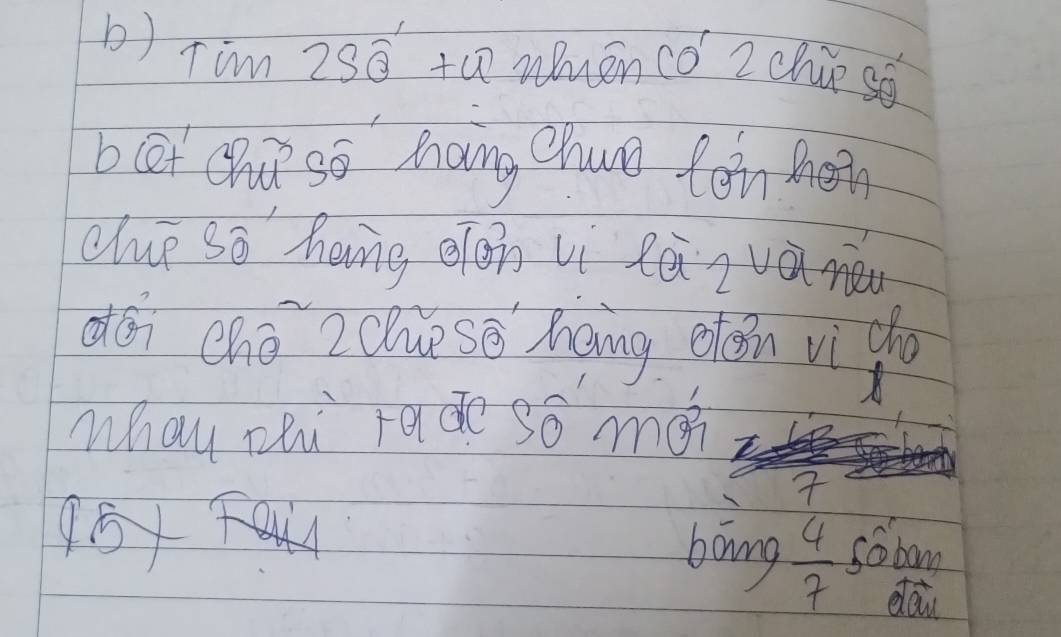 b) Tìm 2 số tự nhiên có 2 chữ số
biết chữ số hàng chục lớn hơn
chữ số hàng đơn vị là 2 và nếu
đổi chỗ 2 chữ số hàng đơn vị cho
nhau thì ta đc số mới
bằng 4/7 số ban
đầu